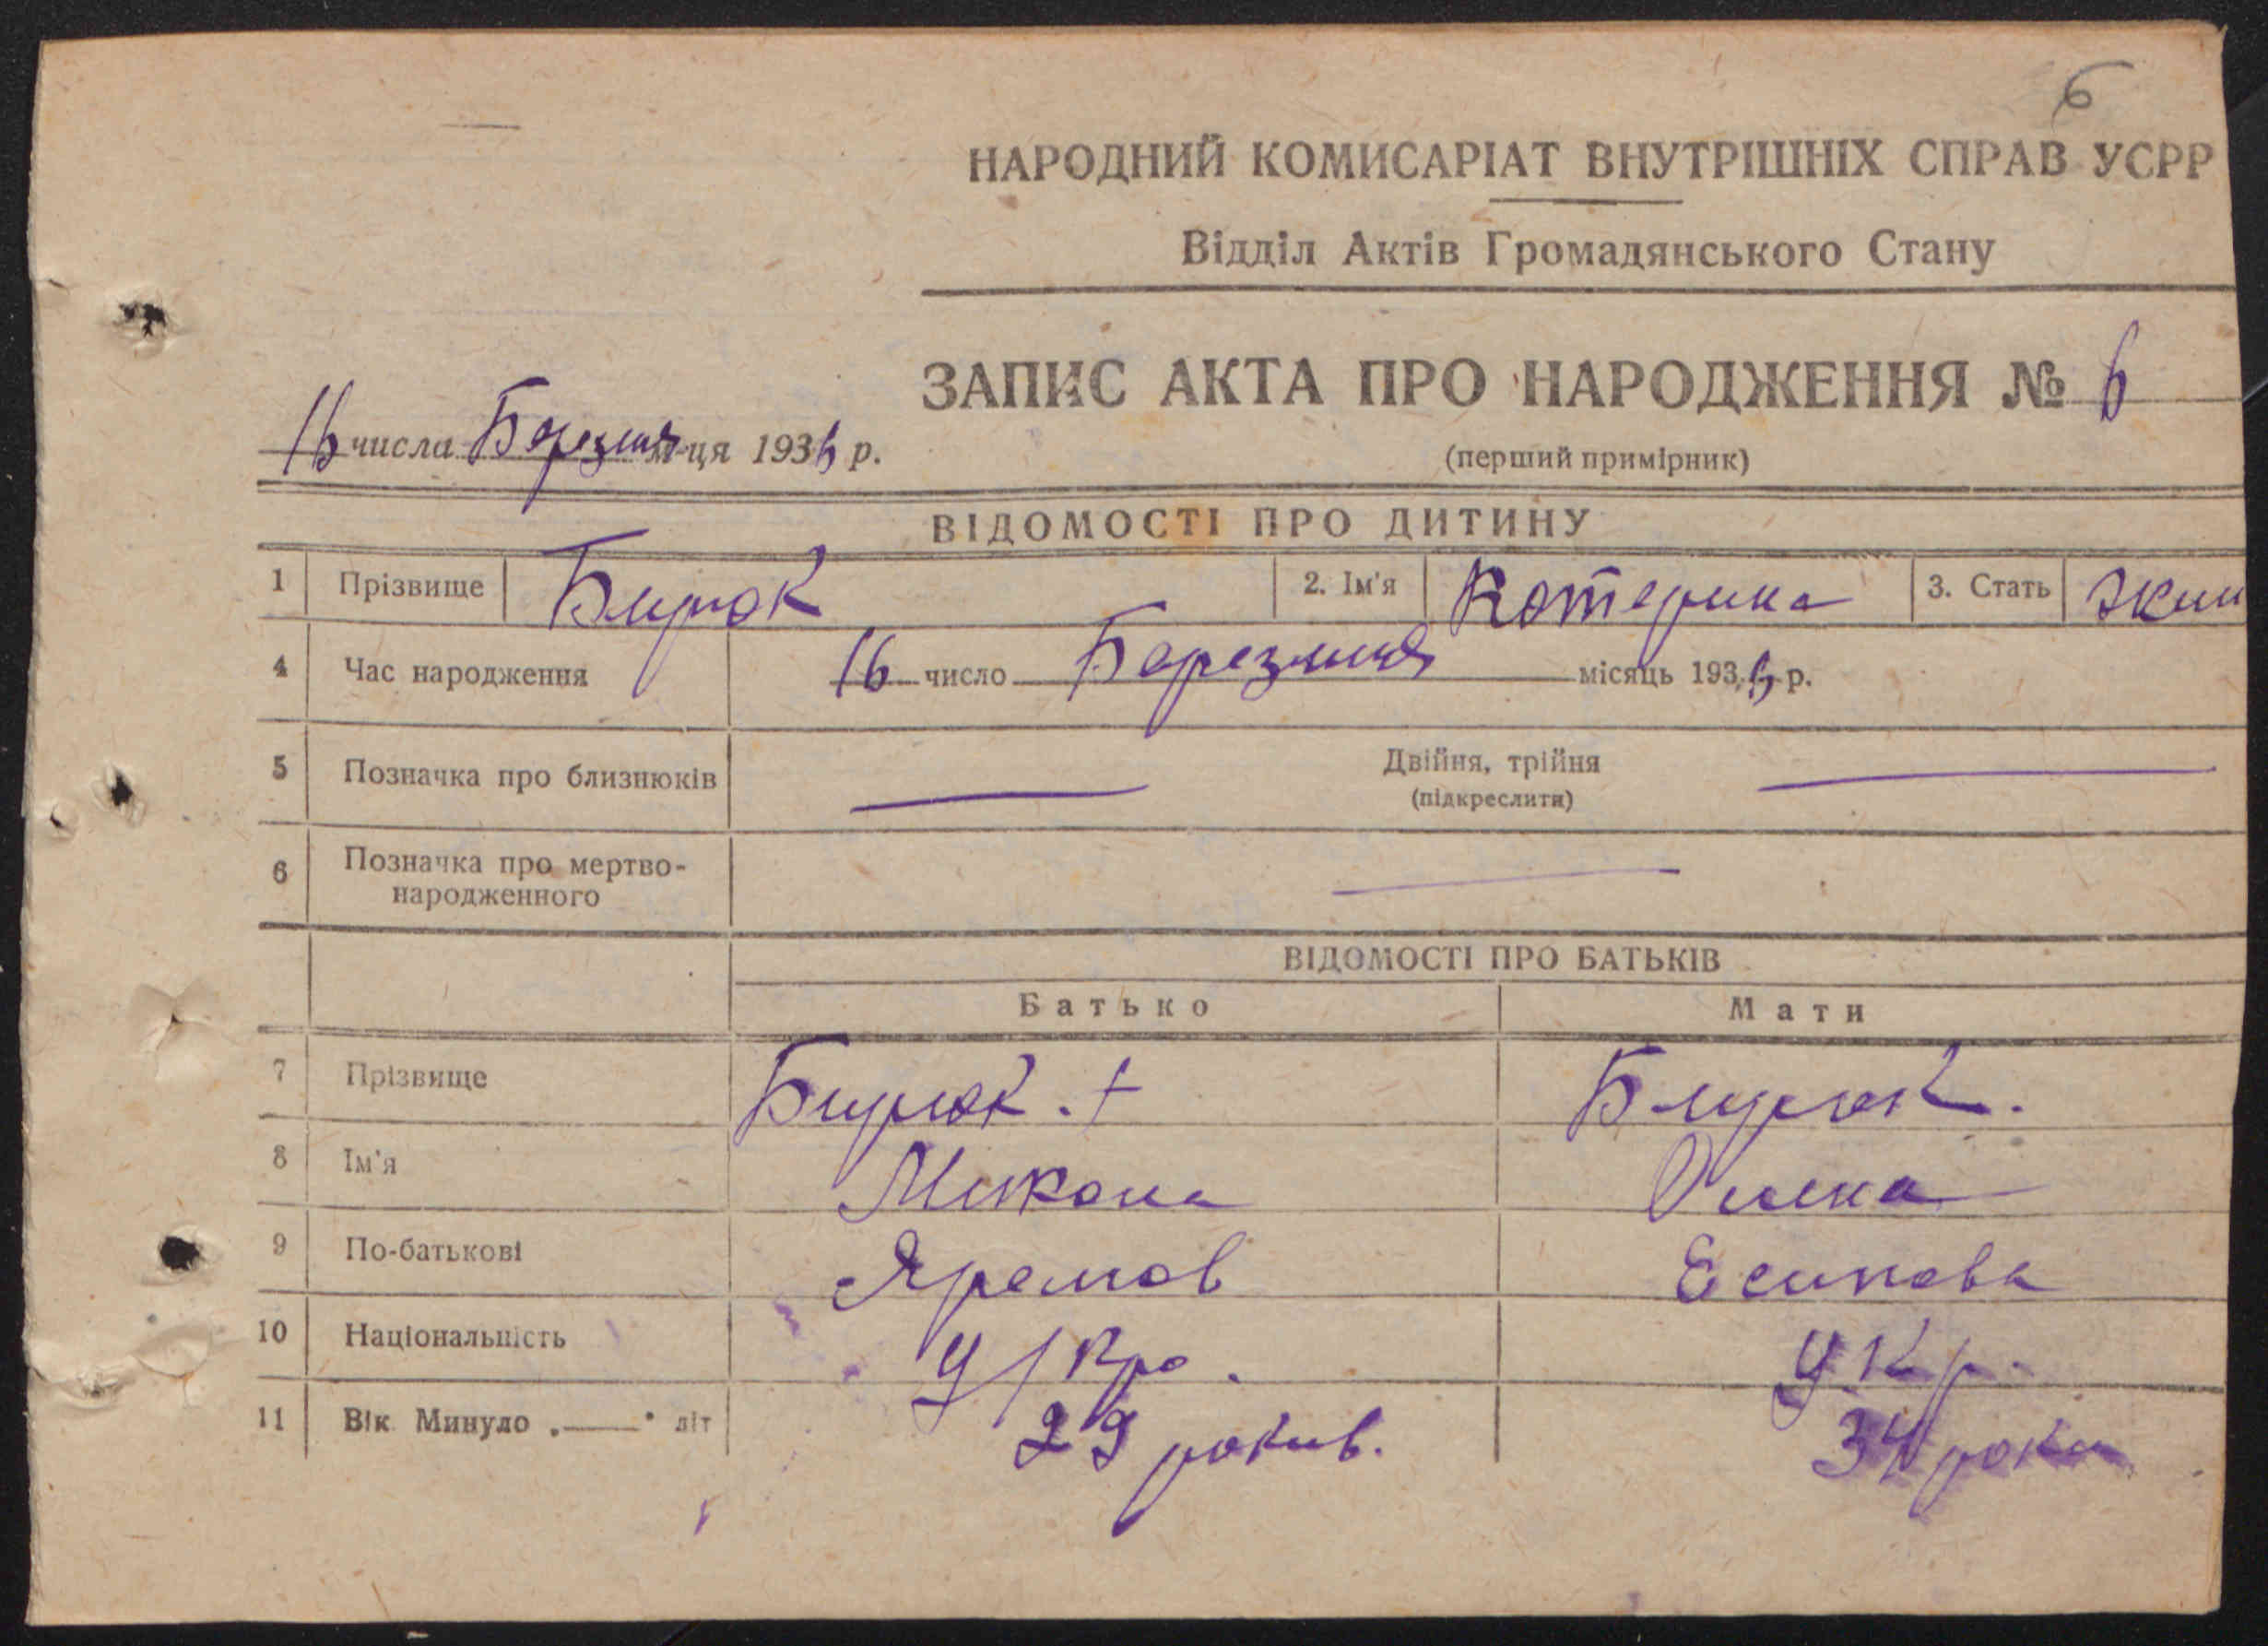 6
НАРОДНИЙ КОМИСАРІАТ ВНУТРІШНІХ СПРАВ УСРР
Відділ Актів Громадянського Стану
ЗАПИС АКТА ПРО НАРОДЖЕННЯ № 6
16 числа Березня м-ця 1936 р.
(перший примірник)
ВІДОМОСТІ ПРО ДИТИНУ
1 Прізвище Бирюк 2. Ім'я Котерина 3. Стать жин
4 Час народження 16 число Березня місяць 1936 р.
5 Позначка про близнюків Двійня, трійня
(підкреслити)
6 Позначка про мертво-
народженного
ВІДОМОСТІ ПРО БАТЬКІВ
Батько Мати
7 Прізвище Бирюк. + Бирюк.
8 Ім'я Микола Олена
9 По-батькові Яремов Есипова
10 Національність У/кра. Укр.
11 Вік Минуло . — . літ 29 рокив. 34 роки